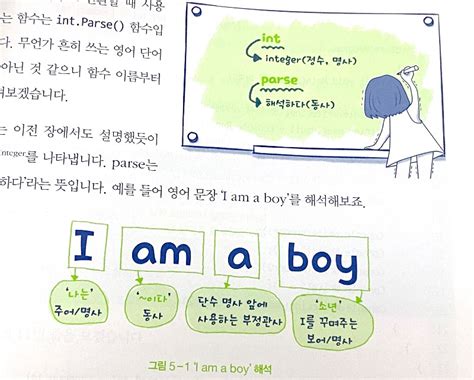 때 사용
는 함수는 int.Parse() 함수입
다. 무언가 흔히 쓰는 영어 단어
아닌 것 같으니 함수 이름부터
보겠습니다.
는 이전 장에서도 설명했듯이
integer를 나타냅니다. parse는
하다'라는 뜻입니다. 예를 들어 영어 문장 'I am a boy'를 해석해보죠.
int
integer(정수, 명사)
parse
해석하다(동사)
I am a boy
'나는'
주어/명사
'~이다'
동사
단수 명사 앞에
사용하는 부정관사
'소년'
I를 꾸며주는
보어/명사
그림 5-1 'I am a boy' 해석